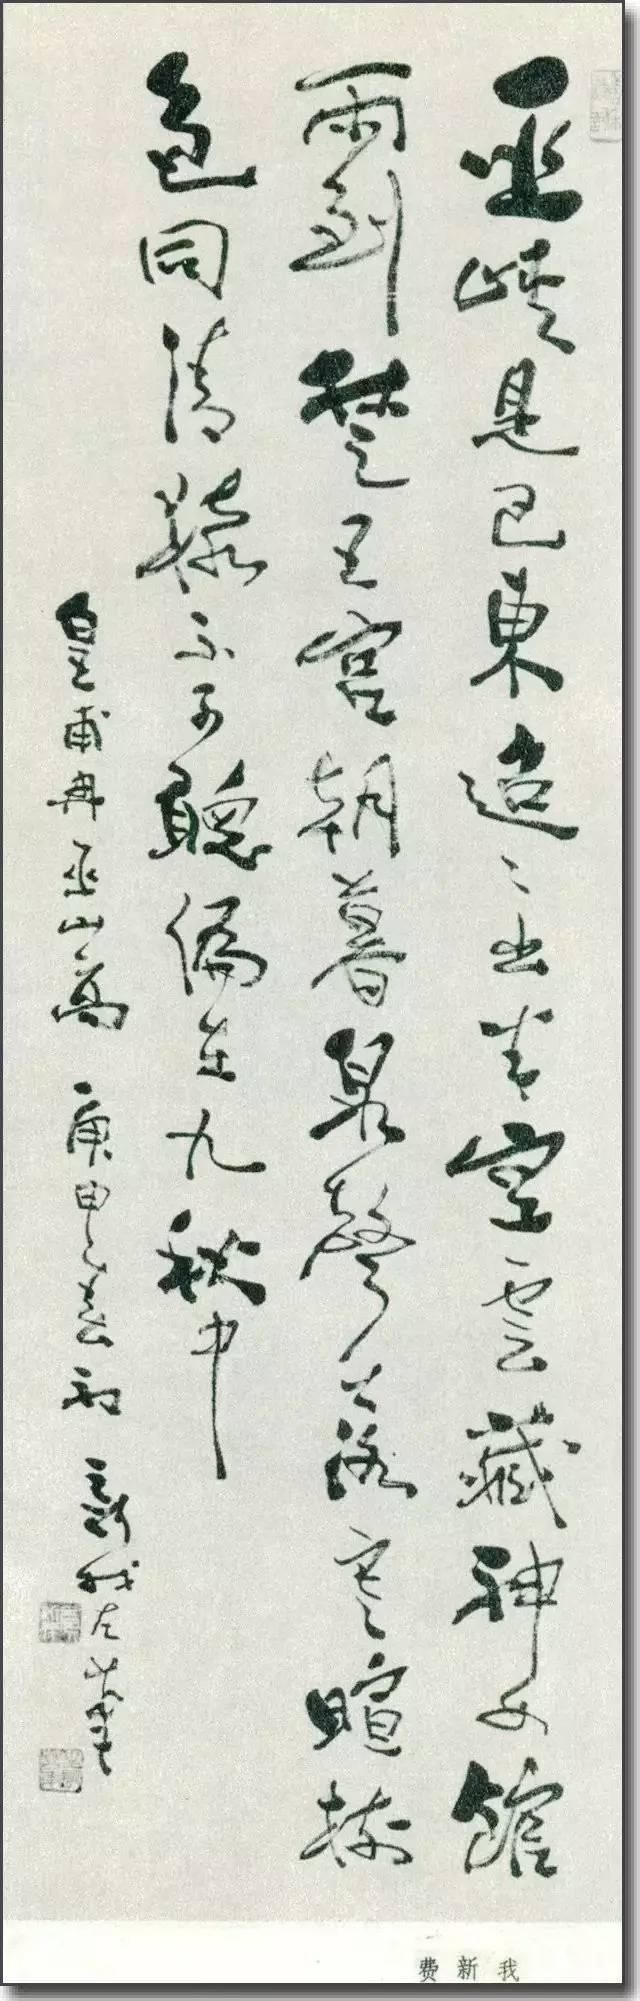 巫峽是巴東迢〻出半空雲藏神女館
雨到楚王宮朝暮泉聲落寒暄樹
色同清猿不可聽偏在九秋中
皇甫冉巫山高 庚申春初 新我左筆
费新我